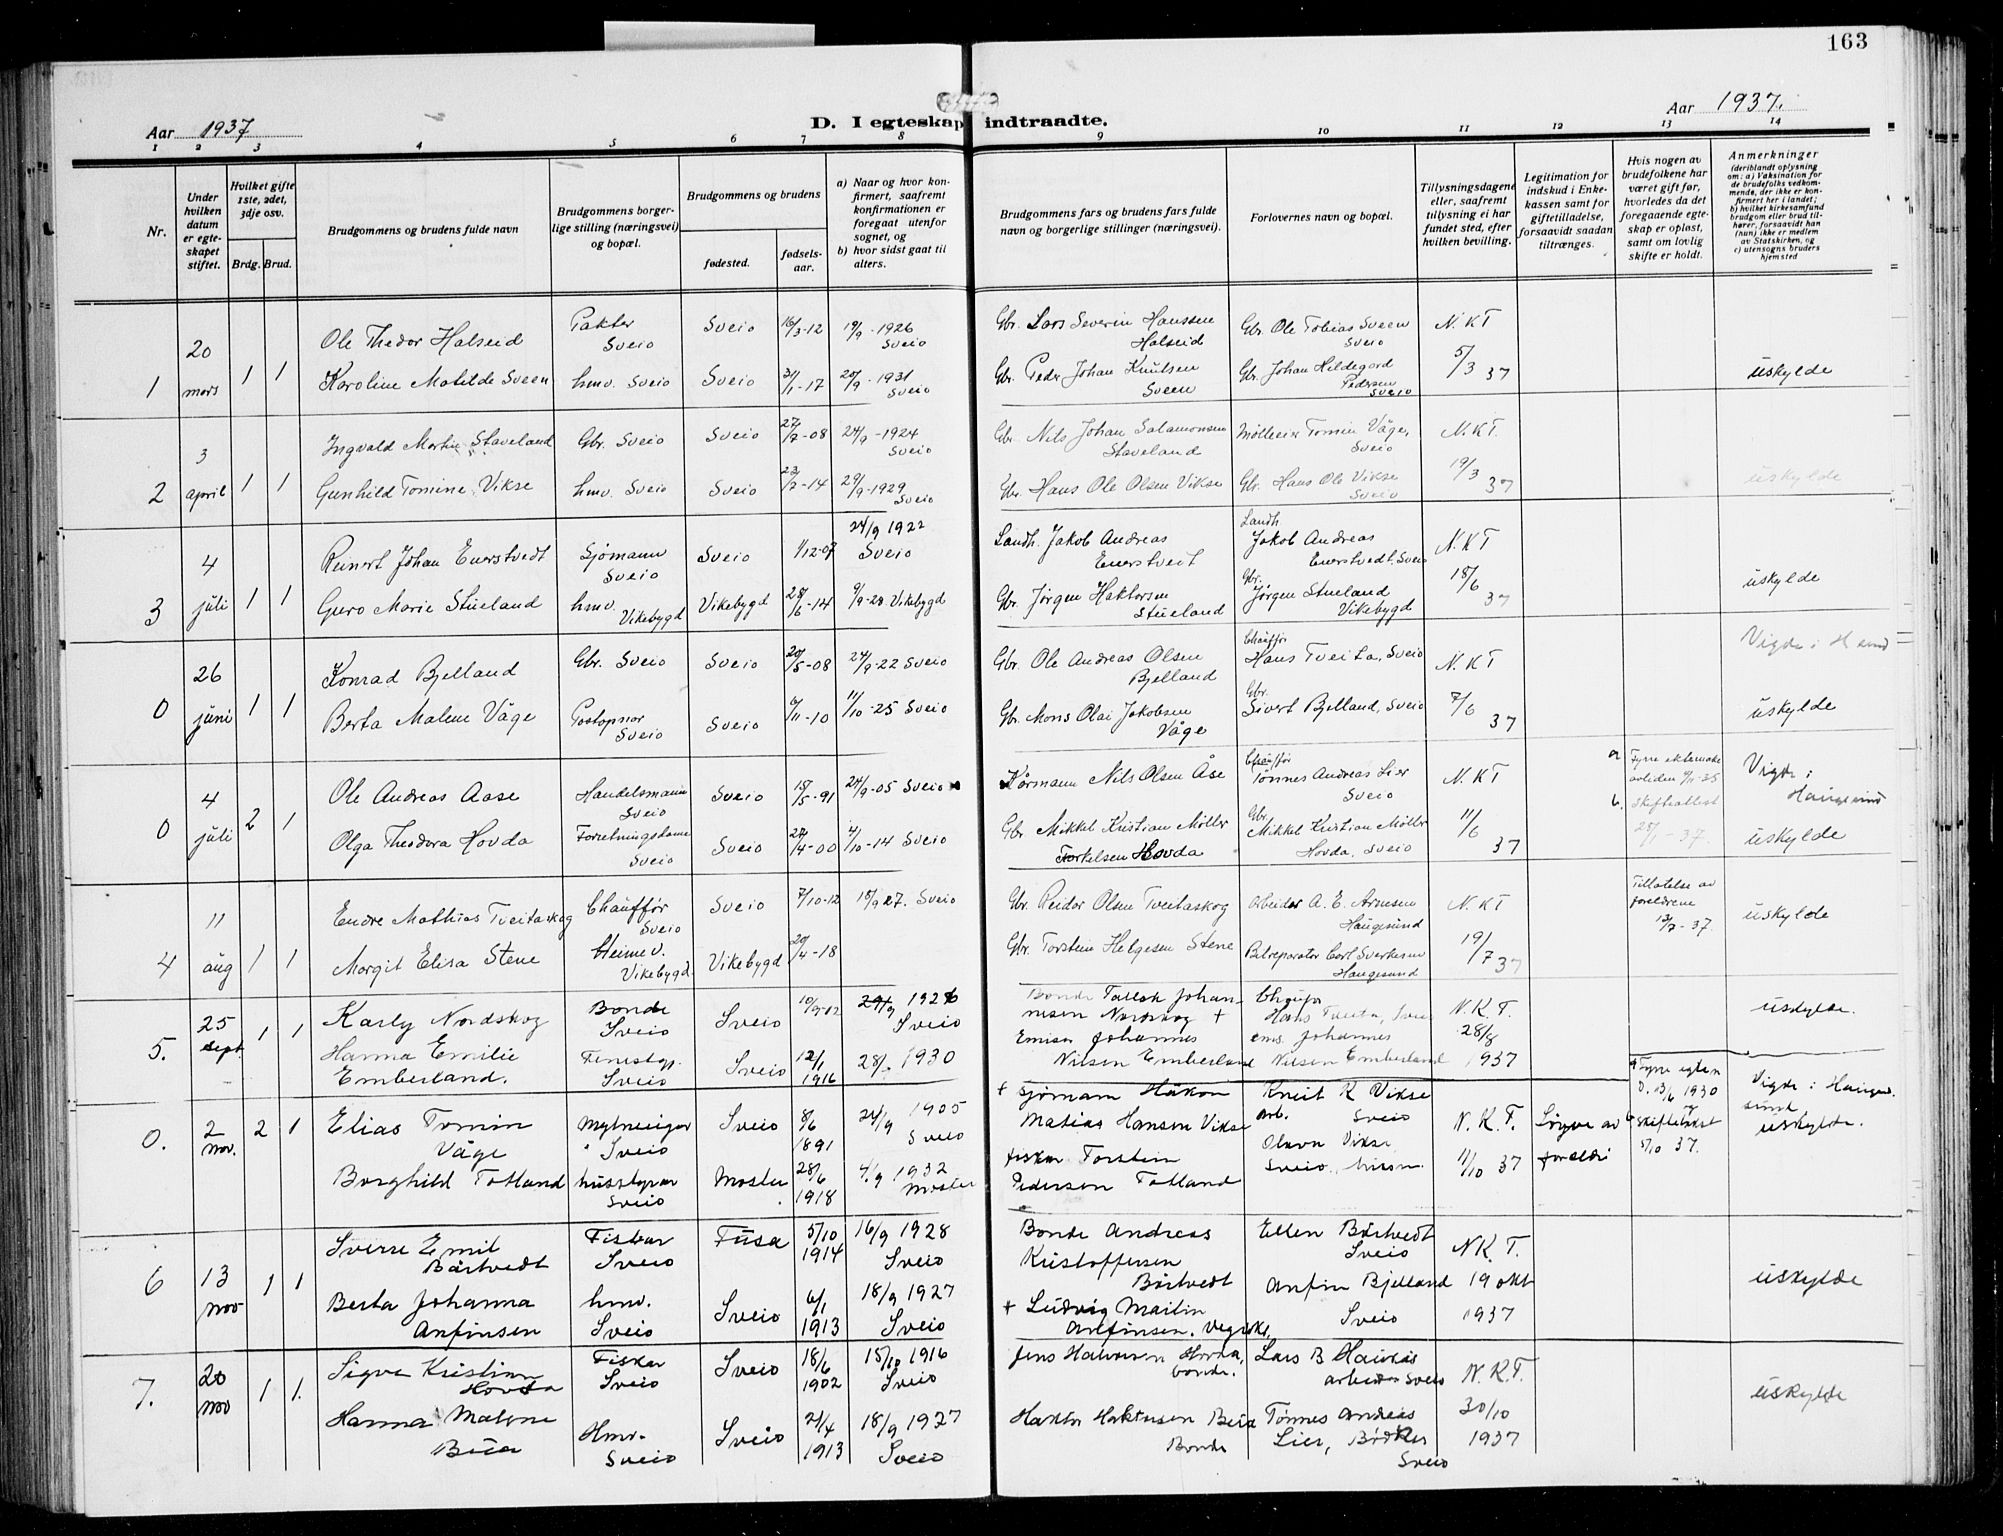 163
Aar 1937
D. I egteskap indtraadte.
Aar 1937.
1 2 3 4 5 6 7 8 9 10 11 12 13 14
Nr.
Under hvilken datum er egteskapet stiftet.
Hvilket gifte 1ste, 2det, 3dje osv.
Brdg. Brud.
Brudgommens og brudens fulde navn
Brudgommens borgerlige stilling (næringsvei) og bopæl.
Brudgommens og brudens
fødested.
fødselsaar.
a) Naar og hvor konfirmert, saafremt konfirmationen er foregaat utenfor sognet, og
b) hvor sidst gaat til alters.
Brudgommens fars og brudens fars fulde navn og borgerlige stillinger (næringsvei).
Forlovernes navn og bopæl.
Tillysningsdagene eller, saafremt tillysning ei har fundet sted, efter hvilken bevilling.
Legitimation for indskud i Enkekassen samt for giftetilladelse, forsaavidt saadan tiltrænges.
Hvis nogen av brudefolkene har været gift før, hvorledes da det foregaaende egteskap er opløst, samt om lovlig skifte er holdt.
Anmerkninger
(deriblandt oplysning om: a) Vaksination for de brudefolks vedkommende, der ikke er konfirmert her i landet; b) hvilket kirkesamfund brudgom eller brud tilhører, forsaavidt han (hun) ikke er medlem av Statskirken, og c) utensogns bruders hjemsted
1 20 mars 1 1
Ole Thedor Halseid Pakter Sveio Sveio 16/3-12 19/9-1926 Sveio Gbr. Lars Severin Hanssen Halseid Gbr. Ole Tobias Sveen Sveio N.KT
Karoline Matilde Sveen hmv. Sveio Sveio 31/1-17 20/9-1931 Sveio Gbr. Peder Johan Knutsen Sveen Gbr. Johan Hildegard Pedersen Sveio 5/3 37 uskylde
2 3 april 1 1
Ingvald Martin Staveland Gbr. Sveio Sveio 27/7-08 24/9-1924 Sveio Gbr. Nils Johan Salamonsen Staveland Tomin Våge, Sveio N.KT.
Gunhild Tomine Vikse hmv. Sveio Sveio 23/7-14 29/9-1929 Sveio Gbr. Hans Ole Olsen Vikse Gbr. Hans Ole Vikse Sveio 19/3 37 uskylde
3 4 juli 1 1
Reinert Johan Enerstvedt Sjømann Sveio Sveio 1/12-07 24/9 1922 Sveio Landh. Jakob Andreas Enerstvedt Landh Jakob Andreas Enerstvedt, Sveio N.KT
Guro Marie Stueland hmv. Vikebygd Vikebygd 28/6-14 9/9-28 Vikebygd Gbr. Jørgen Haktorsen Stueland Gbr. Jørgen Stueland Vikebygd 18/6 37 uskylde
0 26 juni 1 1
Konrad Bjelland Gbr. Sveio Sveio 20/5-08 24/9-22 Sveio Gbr. Ole Andreas Olsen Bjelland Chauffør Hans Tveita, Sveio N.KT Vigde i
Berta Malene Våge Postopnar Sveio Sveio 6/11-10 11/10-25 Sveio Gbr. Mons Olai Jakobsen Våge Gbr. Sivert Bjelland, Sveio 7/6 37 uskylde
0 4 juli 2 1
Ole Andreas Aase Handelsmann Sveio Sveio 15/5-91 24/9-05 Sveio Nils Olsen Åse Chauffør Tønnes Andreas Lier Sveio N.KT a. Fyrre Vigde i Haugesund
Olga Theodora Hovda Forretningsdame Sveio Sveio 27/4-00 4/10-14 Sveio Gbr. Mikkel Kristian Møller Torkelsen Hovda Gbr. Mikkel Kristian Møller Hovda, Sveio 11/6 37 b. 25/1-37. uskylde
4 11 aug 1 1
Endre Mathias Tveitaskog Chauffør Sveio Sveio 7/10-12 18/9 27. Sveio Gbr. Reidar Olsen Tveitaskog arbeider A. E. Arnesen Haugesund N.KT Tillatelse av foreldrene 12/7-37. uskylde
Margit Elisa Stene Heimev. Vikebygd. Vikebygd 20/4-18 Gbr. Torstein Helgesen Stene Bilreparatør Carl Haugesund 19/7 37
5. 25 sept. 1 1
Karly Nordskog Bonde Sveio Sveio 10/9-02 1926 Sveio Bonde Johannesen Nordskog + Hans Tveita, N.K.T. uskylde.
Hanna Emilie Emberland. Sveio Sveio 12/1 1916 28/ 1930 Johannes Nilsen Emberland Johannes Nilsen Emberland 28/8 1937
0. 2 nov. 2 1
Elias Tomin Våge Sveio Sveio 8/6 1891 24/9 1905 Sveio + Sjømann Håkon Matias Hansen Vikse Kneit K Vikse arb. Sveio N.K.T. Løyve av foreldri 13/6 1930 Vigde i Haugesund uskylde.
Borghild Totland Sveio Moster 28/6 1918 4/9 1932 Moster fiskar Torstein Pedersen Totland Olava Vikse Sveio 11/10 37 5/10 37.
6 13 nov 1 1
Sverre Emil Bårtvedt Fiskar Sveio Fusa 5/10 1914 16/9 1928 Sveio Bonde Andreas Kristoffersen Bårtvedt Ellen Bårtvedt Sveio N.K.T.
Berta Johanna Anfinsen hmv. Sveio Sveio 6/1 1913 18/9 1927 Sveio + Ludvig Martin Anfinsen. Anfin Bjelland Sveio 19 okt 1937 uskylde
7. 20 nov 1 1.
Sigva Kristian Hovda Fiskar Sveio Sveio 18/6 1902 15/10 1916 Sveio Jens Halvorsen Hovda, bonde. Lars B Haukås arbeider Sveio N.K.T.
Hanna Malene Bua Hmv. Sveio Sveio 21/4 1913 18/9 1927 Sveio Haktor Haktorsen Bua Bonde Tønnes Andreas Lier, Bødker Sveio 30/10 1937 uskylde